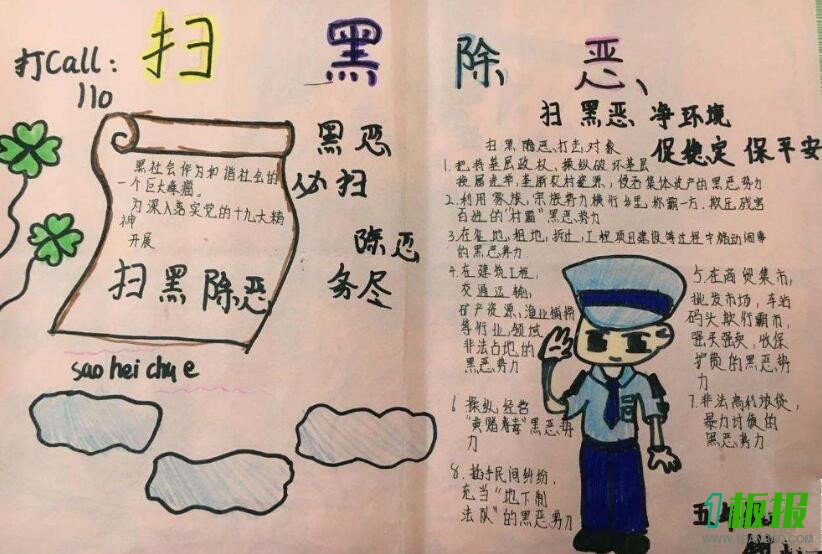 扫 黑 除 恶、
打Call：
110
黑社会作为和谐社会的
一个巨大毒瘤。
为深入落实党的十九大精
神
开展
扫黑除恶
sao hei chu e
黑恶
必扫
除恶
务尽
扫黑恶、净环境
促稳定 保平安
扫黑除恶、打击对象
1.把持基层政权，操纵破坏基层
换届选举，垄断农村资源，侵吞集体资产的黑恶势力
2.利用家族，宗族势力横行乡里，称霸一方，欺压残害
百姓的“村霸”黑恶势力
3.在征地，租地，拆迁，工程项目建设等过程中煽动闹事
的黑恶势力
4.在建筑工程，
交通运输，
矿产资源，渔业捕捞
等行业，领域
非法占地的
黑恶势力
5.在商贸集市，
批发市场，车站
码头欺行霸市，
强买强卖，收保
护费的黑恶势
力
6.操纵，经营
“黄赌毒”黑恶势
力
7.非法高利放贷，
暴力讨债的
黑恶势力
8.插手民间纠纷，
充当“地下制
法队”的黑恶势力
五
1板报
WWW.1BANBAO.COM